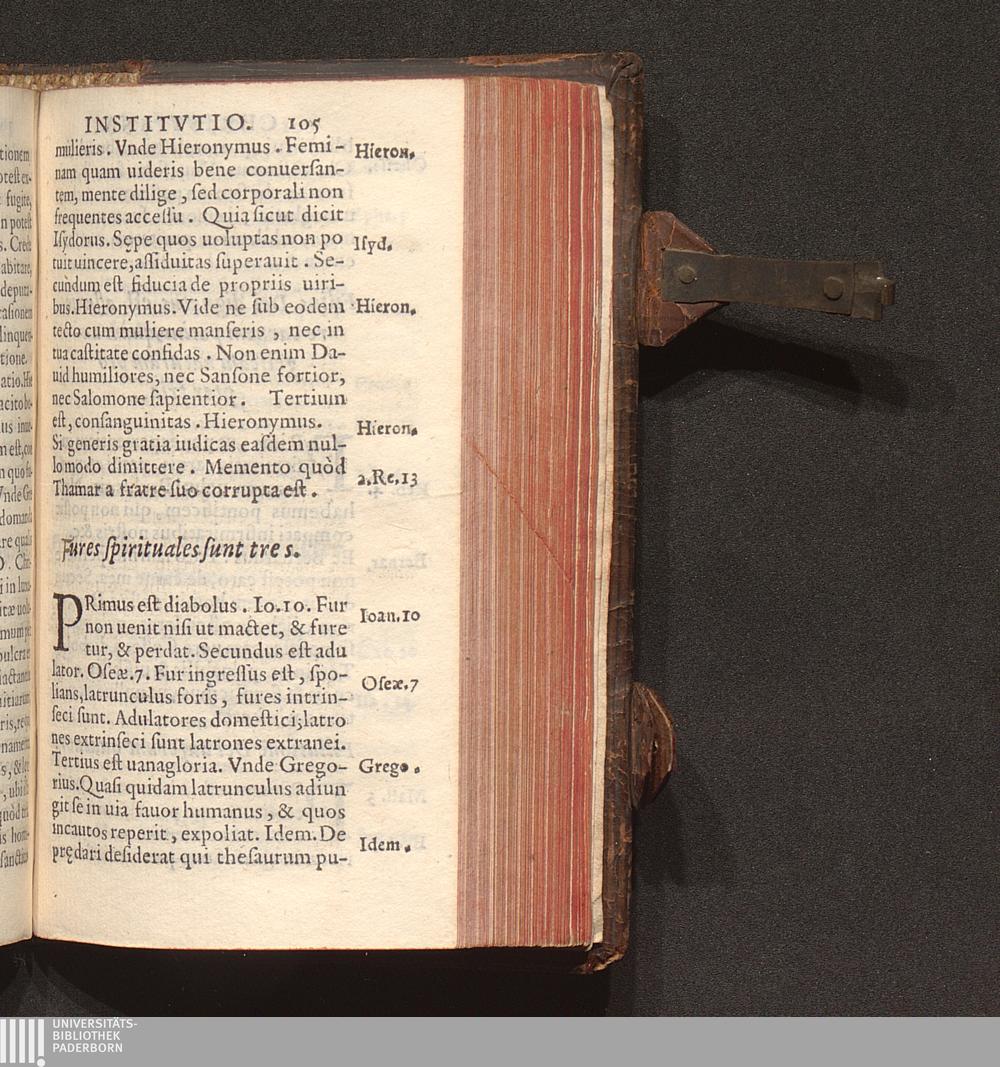 INSTITVTIO. 105
mulieris. Vnde Hieronymus. Femi- Hieron.
nam quam uideris bene conuersan-
tem, mente dilige, sed corporali non
frequentes accessu. Quia sicut dicit
Isydorus. Sępe quos uoluptas non po Isyd.
tuit uincere, assiduitas superauit. Se-
cundum est fiducia de propriis uiri-
bus. Hieronymus. Vide ne sub eodem Hieron.
tecto cum muliere manseris, nec in
tua castitate confidas. Non enim Da-
uid humiliores, nec Sansone fortior,
nec Salomone sapientior. Tertium
est, consanguinitas. Hieronymus. Hieron.
Si generis gratia iudicas easdem nul-
lo modo dimittere. Memento quòd 2.Re.13
Thamar a fratre suo corrupta est.
Fures spirituales sunt tres.
PRimus est diabolus. Io.10. Fur Ioan.10
non uenit nisi ut mactet, & fure
tur, & perdat. Secundus est adu
lator. Oseæ.7. Fur ingressus est, spo- Oseæ.7
lians, latrunculus foris, fures intrin-
seci sunt. Adulatores domestici; latro
nes extrinseci sunt latrones extranei.
Tertius est uanagloria. Vnde Grego- Grego.
rius. Quasi quidam latrunculus adiun
git se in uia fauor humanus, & quos
incautos reperit, expoliat. Idem. De Idem.
prędari desiderat qui thesaurum pu-
tionem
fugite,
n potest
s. Crede
abitare,
deputa-
casionem
linquen-
tione.
UNIVERSITÄTS-
BIBLIOTHEK
PADERBORN